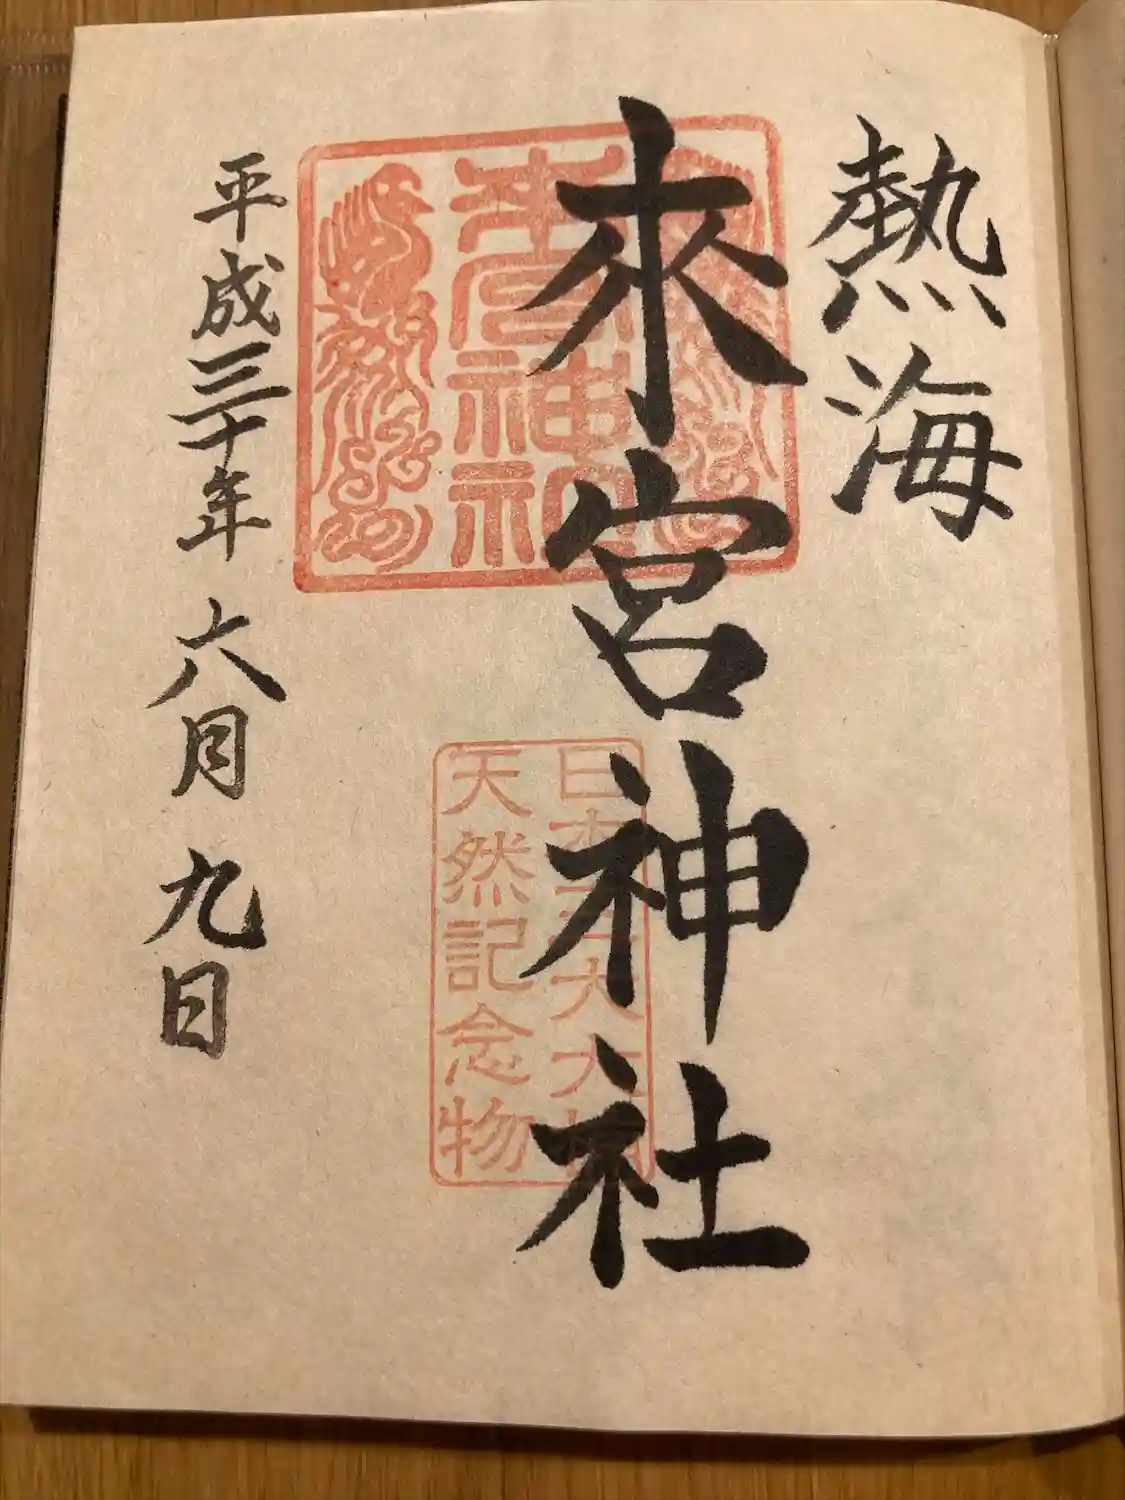 熱海
來宮神社
來宮神社
日本三大大楠
天然記念物
平成三十年 六月 九日